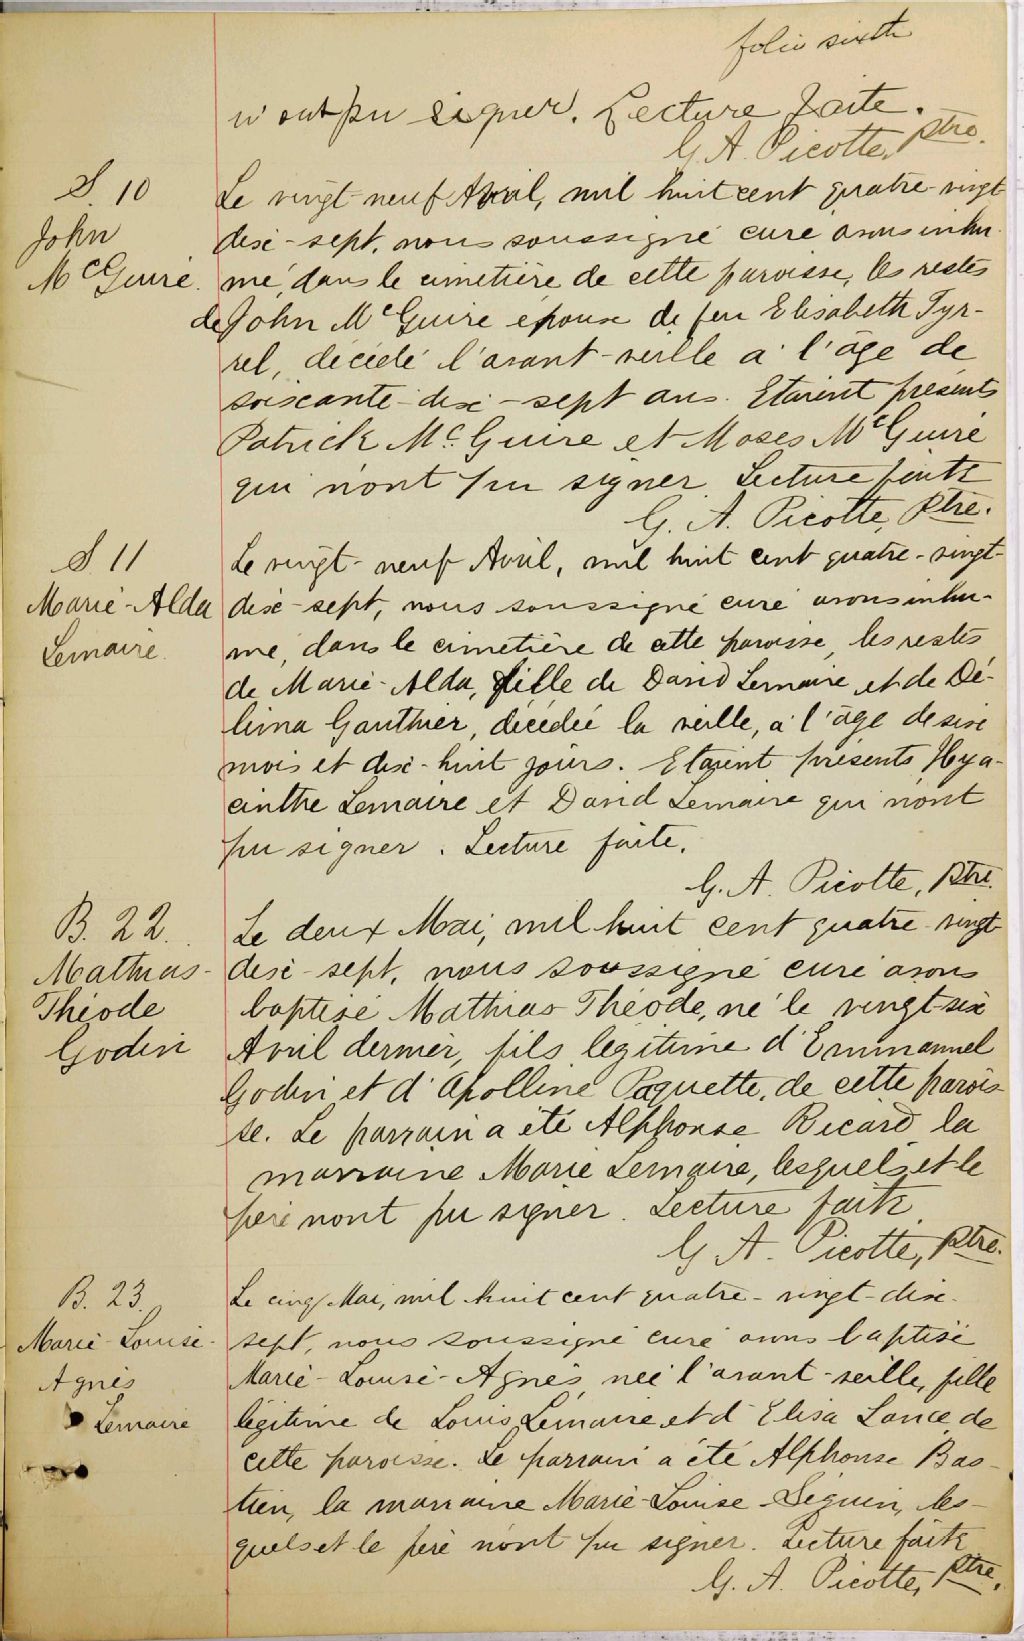 folio sixth
n'ont pu signer. Lecture faite.
G. A. Picotte, Ptre.
S. 10
John
McGuire.
Le vingt-neuf Avril, mil huit cent quatre-vingt
dix-sept, nous soussigné curé avons inhu-
mé, dans le cimetière de cette paroisse, les restes
de John McGuire époux de feu Elisabeth Tyr-
rel, décédé l'avant-veille à l'âge de
soixante-dix-sept ans. Etaient présents
Patrick McGuire et Moses McGuire
qui n'ont pu signer Lecture faite
G. A. Picotte, Ptre.
S. 11
Marie-Alda
Lemaire.
Le vingt-neuf Avril, mil huit cent quatre-vingt-
dix-sept, nous soussigné curé avons inhu-
mé, dans le cimetière de cette paroisse, les restes
de Marie-Alda, fille de David Lemaire et de Dé-
lima Gauthier, décédée la veille, à l'âge de six
mois et dix-huit jours. Etaient présents Hya-
cinthe Lemaire et David Lemaire qui n'ont
pu signer. Lecture faite.
G. A. Picotte, Ptre.
B. 22.
Mathias-
Théode
Godin
Le deux Mai, mil huit cent quatre-vingt-
dix-sept, nous soussigné curé avons
baptisé Mathias Théode, né le vingt-six
Avril dernier, fils légitime d'Emmanuel
Godin et d'Apolline Paquette, de cette parois-
se. Le parrain a été Alphonse Ricard la
marraine Marie Lemaire, lesquels et le
père n'ont pu signer. Lecture faite
G. A. Picotte, Ptre.
B. 23.
Marie-Louise-
Agnès
Lemaire
Le cinq Mai, mil huit cent quatre-vingt-dix-
sept, nous soussigné curé avons baptisé
Marie-Louise-Agnès, née l'avant-veille, fille
légitime de Louis Lemaire et d'Elisa Lance de
cette paroisse. Le parrain a été Alphonse Bas-
tien, la marraine Marie-Louise Séguin, les-
quels et le père n'ont pu signer. Lecture faite
G. A. Picotte, Ptre.